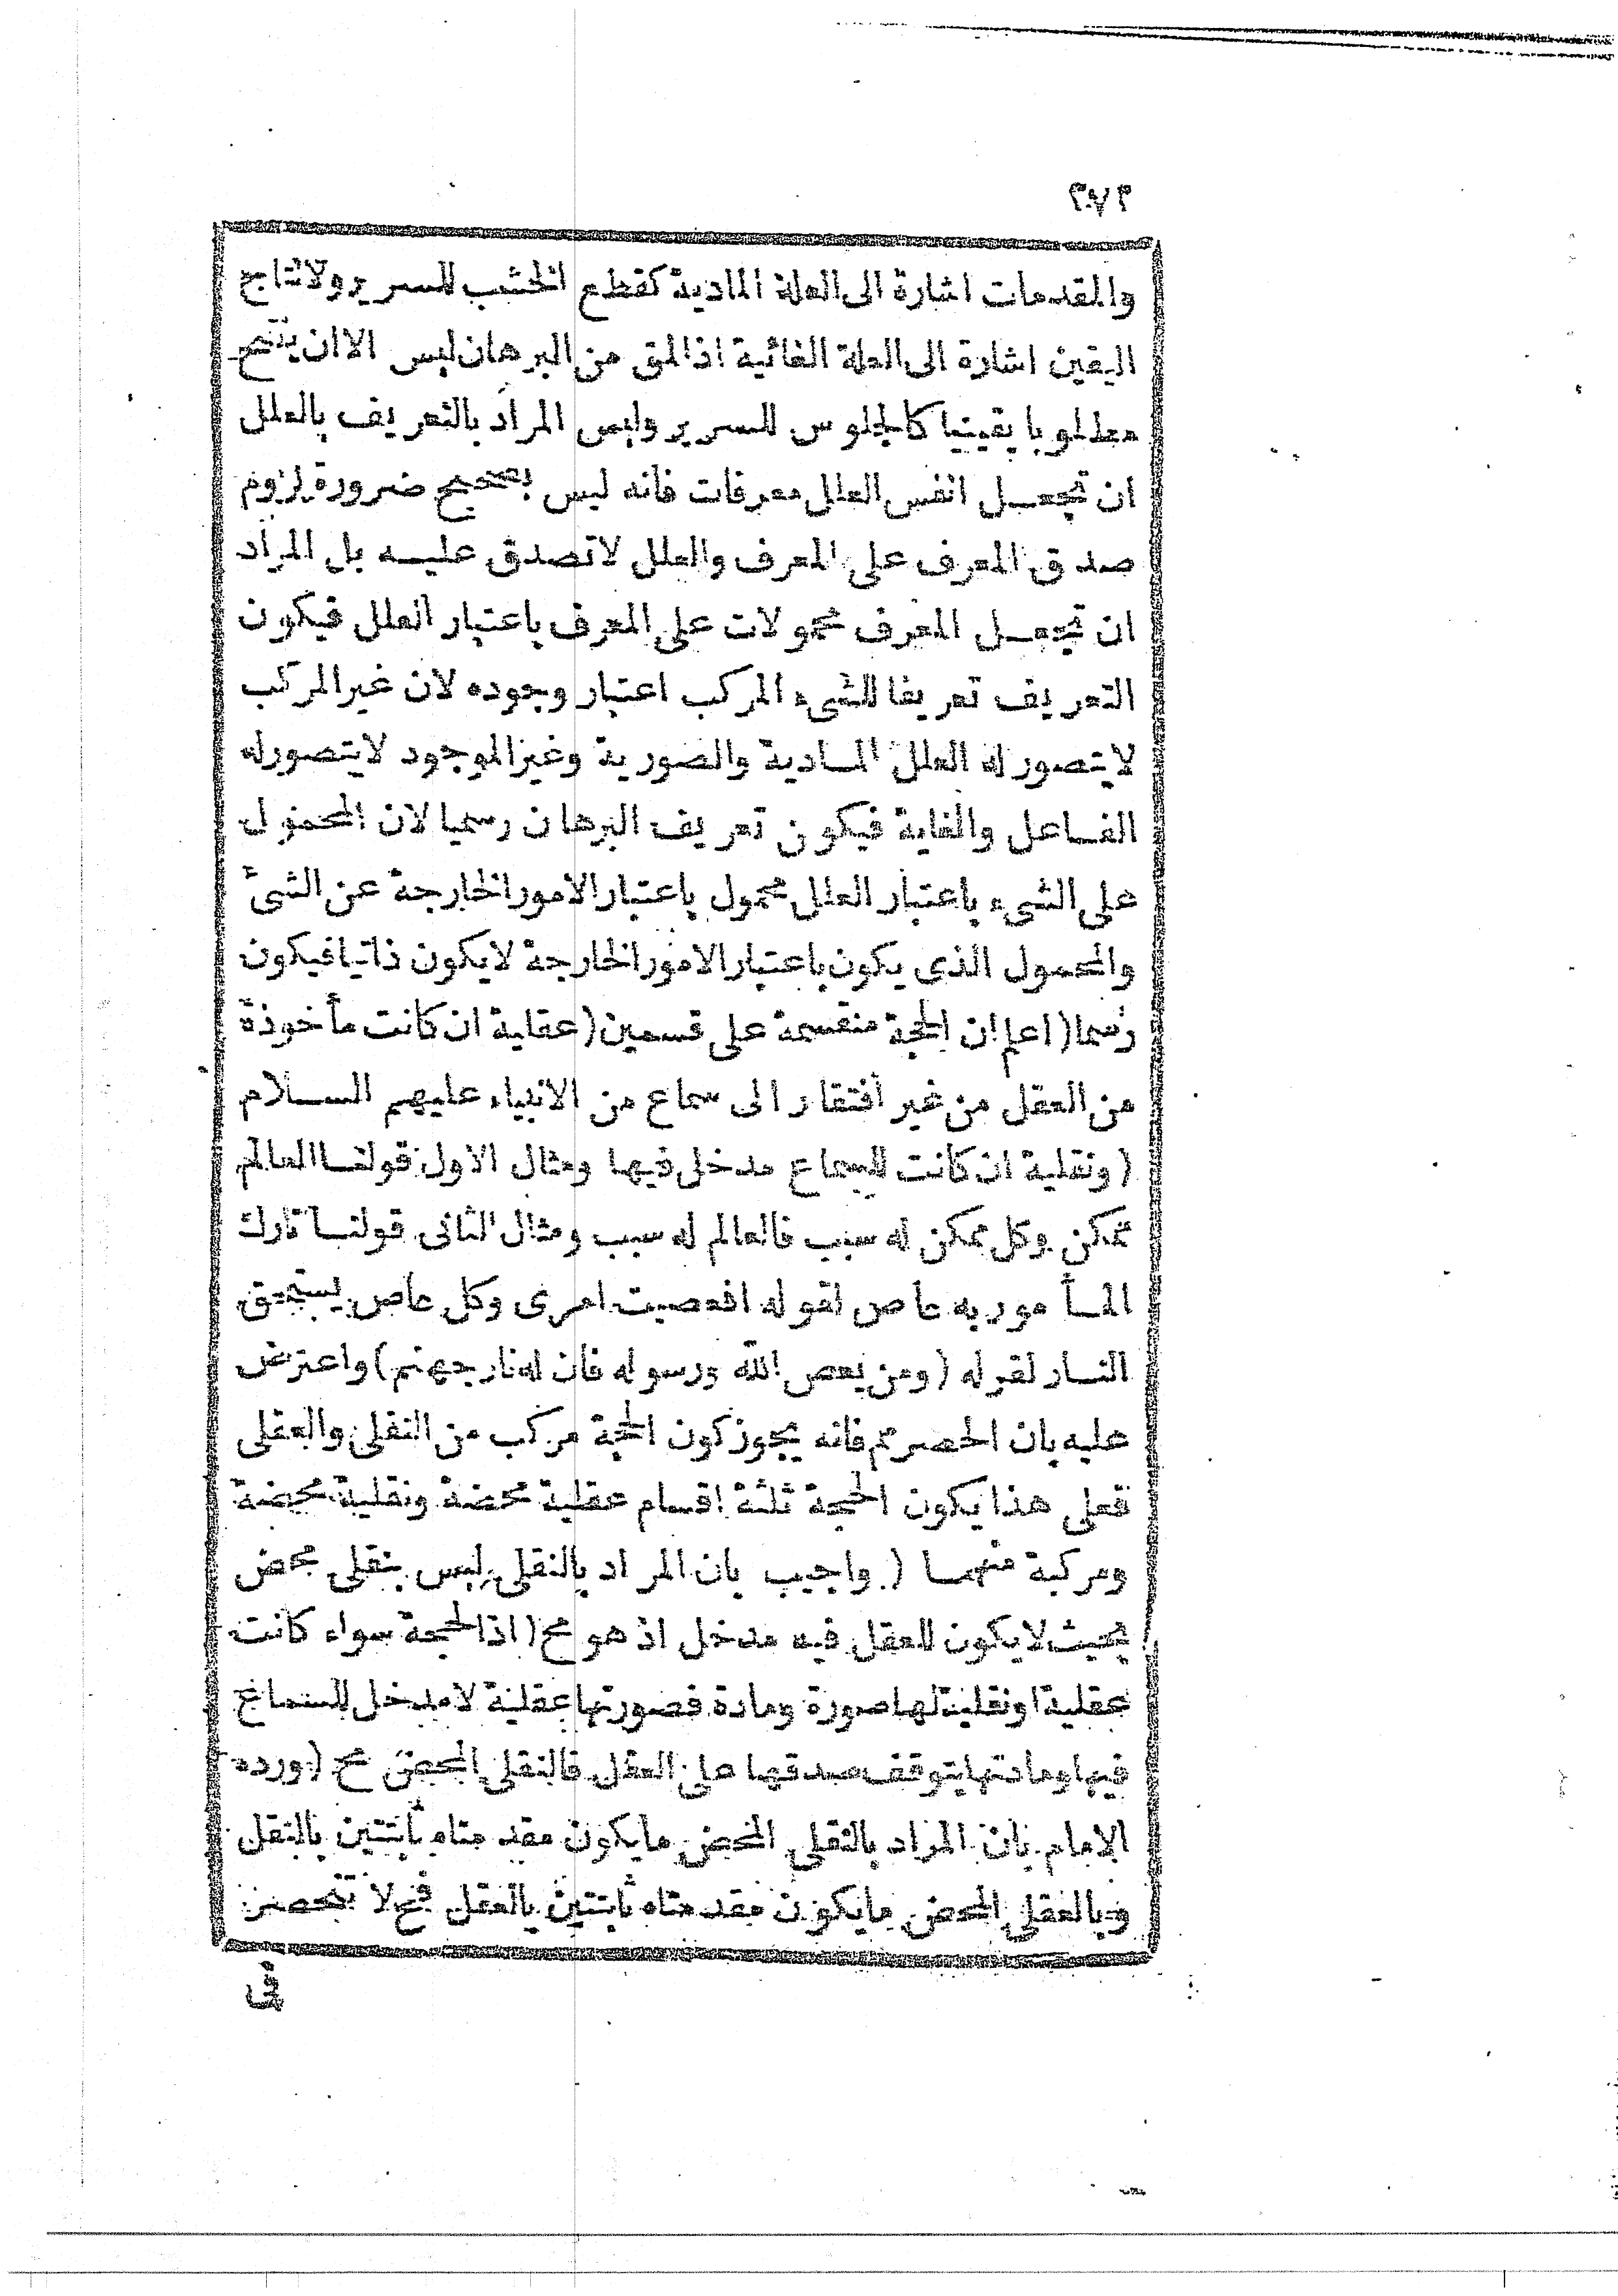 ٢٧٢
والمقدمات اشارة الى العلة المادية كقطع الخشب للسرير ولانتاج
اليقين اشارة الى العلة الغائية اذ المق من البرهان ليس الا ان ينتج
مطلوبا يقينيا كالجلوس للسرير وليس المراد بالتعريف بالعلل
ان تجعل انفس العلل معرفات فانه ليس بصحيح ضرورة لزوم
صدق المعرف على المعرف والعلل لا تصدق عليه بل المراد
ان تجعل المعرف محمولات على المعرف باعتبار العلل فيكون
التعريف تعريفا للشىء المركب اعتبار وجوده لان غير المركب
لا يتصور له العلل المادية والصورية وغير الموجود لا يتصور له
الفاعل والغاية فيكون تعريف البرهان رسميا لان المحمول
على الشىء باعتبار العلل محمول باعتبار الامور الخارجة عن الشئ
والمحمول الذى يكون باعتبار الامور الخارجة لا يكون ذاتيا فيكون
رسما ( اعلم ان الحجة منقسمة على قسمين ( عقلية ان كانت مأخوذة
من العقل من غير افتقار الى سماع من الانبياء عليهم السلام
( ونقلية ان كانت للسماع مدخل فيها ومثال الاول قولنا العالم
ممكن وكل ممكن له سبب فالعالم له سبب ومثال الثانى قولنا تارك
المأمور به عاص لقوله افعصيت امرى وكل عاص يستحق
النار لقوله ( ومن يعص الله ورسوله فان له نار جهنم ) واعترض
عليه بان الحصر مم فانه يجوز كون الحجة مركب من النقلى والعقلى
فعلى هذا يكون الحجة ثلثة اقسام عقلية محضة ونقلية محضة
ومركبة منهما ( واجيب بان المراد بالنقلى ليس بنقلى محض
بحيث لا يكون للعقل فيه مدخل اذ هو مح ( اذ الحجة سواء كانت
عقلية او نقلية لها صورة ومادة فصورتها عقلية لا مدخل للسماع
فيها ومادتها يتوقف صدقها على العقل فالنقلى المحض مح ( ورده
الامام بان المراد بالنقلى المحض ما يكون مقدمتاه ثابتتين بالنقل
وبالعقلى المحض ما يكون مقدمتاه ثابتتين بالعقل فح لا تنحصر
فى